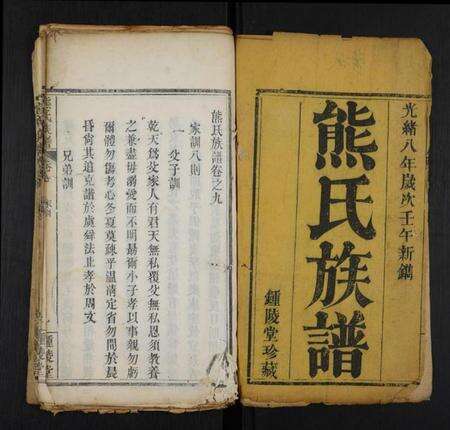 光緒八年歲次壬午新鐫
熊氏族譜
鍾陵堂珍藏
熊氏族譜卷之九
家訓八則
一 父子訓
乾天為父家人有君天無私覆父無私恩須教養
之兼盡毋溺愛而不明勗爾小子孝以事親勿虧
爾體勿傷考心冬夏莫疎乎溫凊定省勿間於晨
昏尚其道克諧於虞舜法止孝於周文
兄弟訓
鍾陵堂